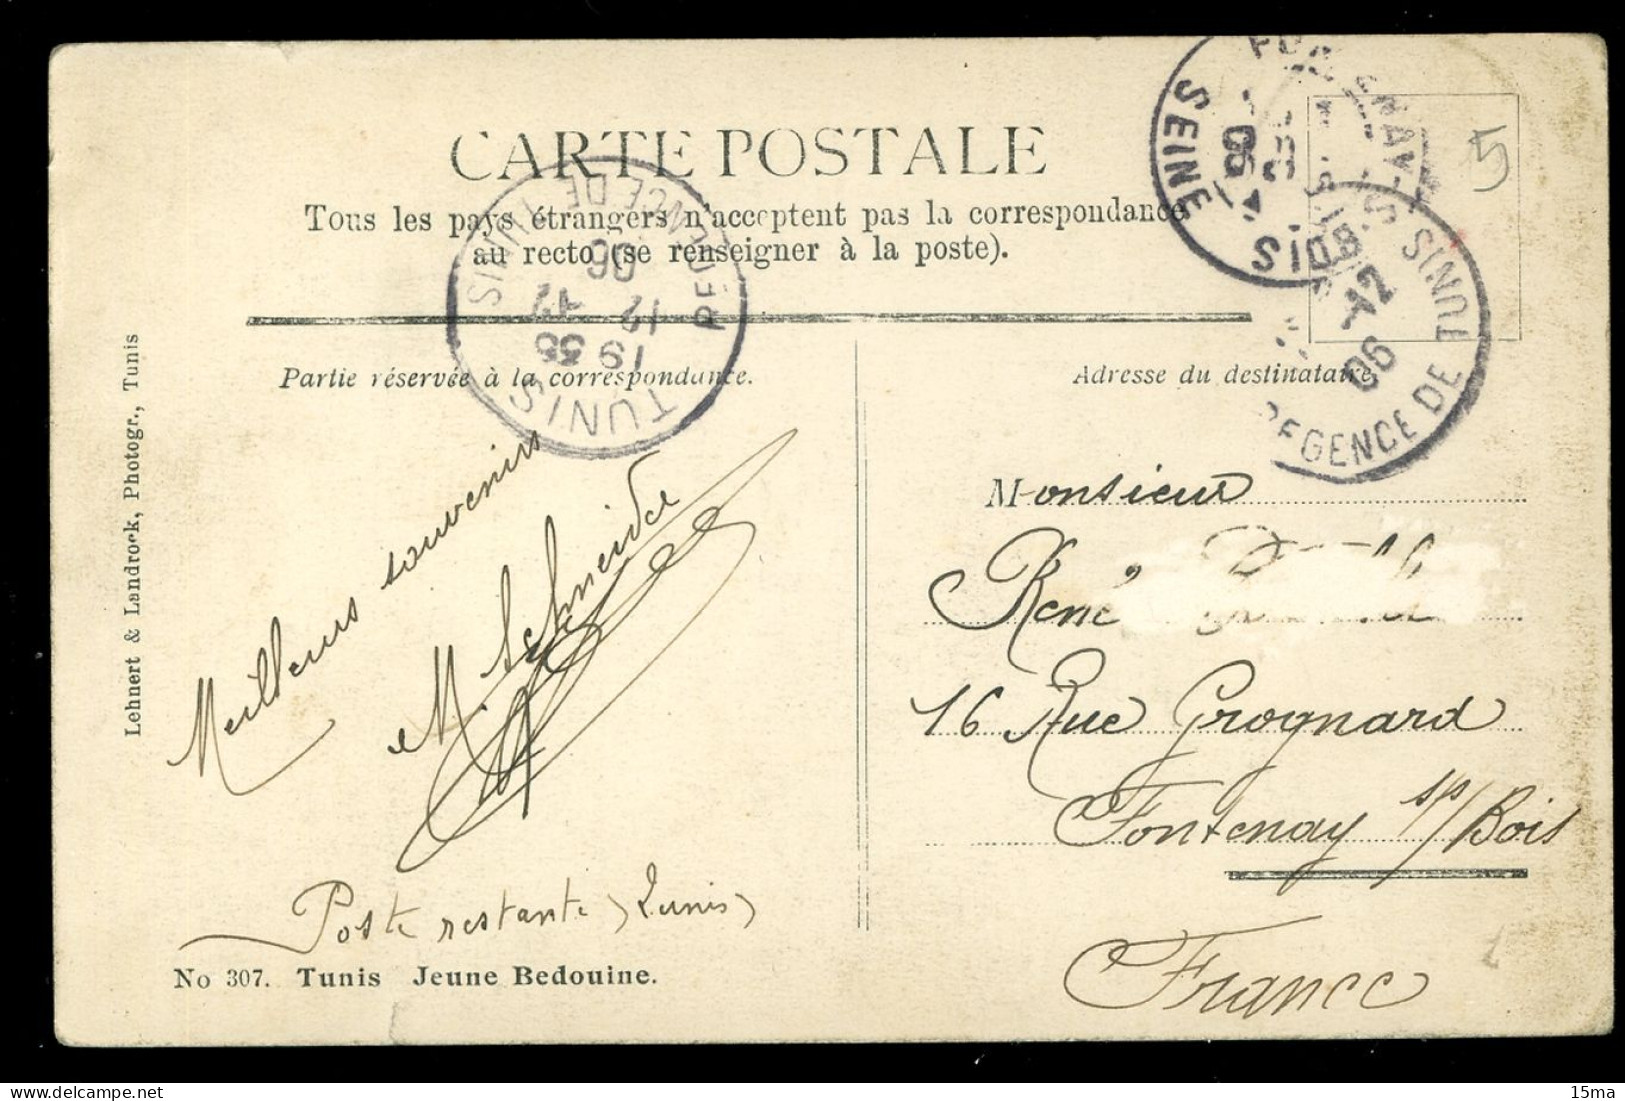 CARTE POSTALE
Tous les pays étrangers n'acceptent pas la correspondance
au recto (se renseigner à la poste).
Partie réservée à la correspondance.
Adresse du destinataire
Lehnert & Landrock, Photogr., Tunis
TUNIS
REGENCE DE TUNIS
19 35
12 -12
06
SEINE
S-BOIS
TUNIS
REGENCE DE TUNIS
-12
06
5
Meilleurs souvenirs
M. Schneider
Poste restante (Tunis)
No 307. Tunis Jeune Bedouine.
Monsieur
René
16 Rue Grognard
Fontenay s/Bois
France
15ma